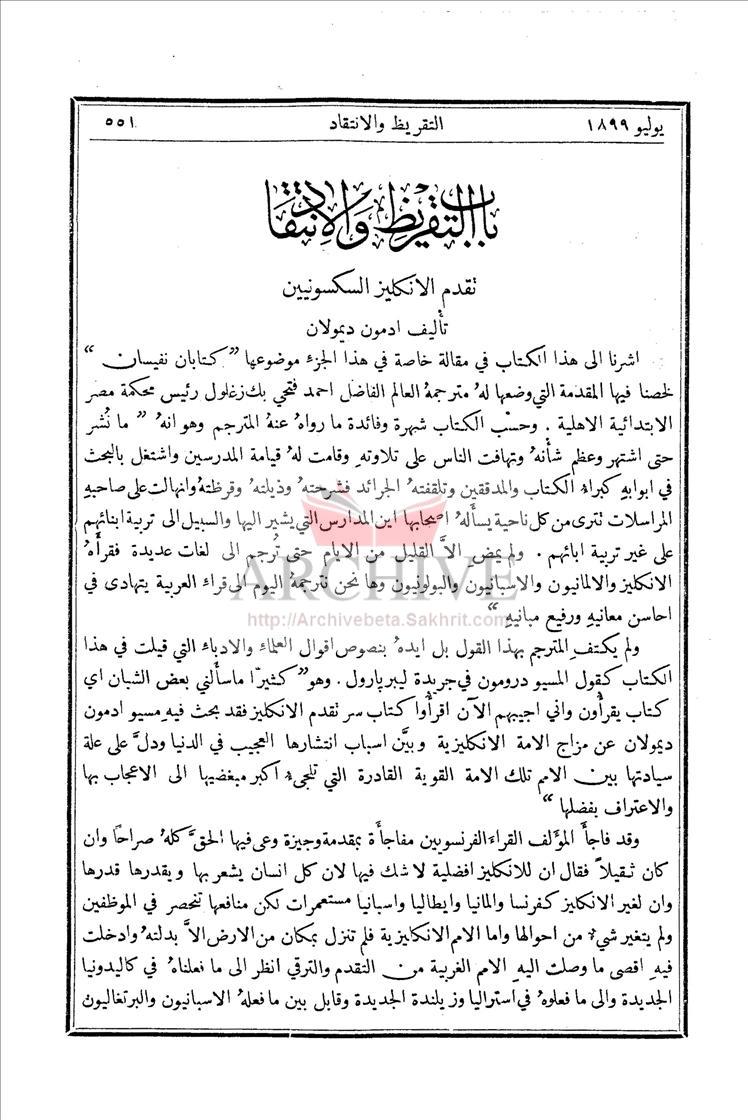 يوليو ١٨٩٩ التقريظ والانتقاد ٥٥١
باب التقريظ والانتقاد
تقدم الانكليز السكسونيين
تأليف ادمون ديمولان
اشرنا الى هذا الكتاب في مقالة خاصة في هذا الجزء موضوعها "كتابان نفيسان"
لخصنا فيها المقدمة التي وضعها لهُ مترجمهُ العالم الفاضل احمد فتحي بك زغلول رئيس محكمة مصر
الابتدائية الاهلية . وحسْب الكتاب شهرة وفائدة ما رواهُ عنهُ المترجم وهو انهُ "ما نُشر
حتى اشتهر وعظم شأنهُ وتهافت الناس على تلاوتهِ وقامت لهُ قيامة المدرسين واشتغل بالبحث
في ابوابهِ كبراءُ الكتاب والمدققين وتلقفتهُ الجرائد فشرحتهُ وذيلتهُ وقرظتهُ وانهالت على صاحبهِ
المراسلات تترى من كل ناحية يسألهُ اصحابها اين المدارس التي يشير اليها والسبيل الى تربية ابنائهم
على غير تربية ابائهم . ولم يمض الاَّ القليل من الايام حتى تُرجم الى لغات عديدة فقرأهُ
الانكليز والالمانيون والاسبانيون والبولونيون وها نحن نترجمهُ اليوم الى قراء العربية يتهادى في
احاسن معانيهِ ورفيع مبانيهِ"
ARCHIVE
http://Archivebeta.Sakhrit.com
ولم يكتفِ المترجم بهذا القول بل ايدهُ بنصوص اقوال العلماء والادباء التي قيلت في هذا
الكتاب كقول المسيو درومون في جريدة ليبر پارول . وهو "كثيرًا ما سألني بعض الشبان اي
كتاب يقرأون واني اجيبهم الآن اقرأوا كتاب سر تقدم الانكليز فقد بحث فيهِ مسيو ادمون
ديمولان عن مزاج الامة الانكليزية وبيَّن اسباب انتشارها العجيب في الدنيا ودلَّ على علة
سيادتها بين الامم تلك الامة القوية القادرة التي تلجىء اكبر مبغضيها الى الاعجاب بها
والاعتراف بفضلها"
وقد فاجأ المؤلف القراء الفرنسويين مفاجأة بمقدمة وجيزة وعى فيها الحقَّ كلهُ صراحًا وان
كان ثقيلاً فقال ان للانكليز افضلية لا شك فيها لان كل انسان يشعر بها ويقدرها قدرها
وان لغير الانكليز كفرنسا والمانيا وايطاليا واسبانيا مستعمرات لكن منافعها تنحصر في الموظفين
ولم يتغير شيءٌ من احوالها واما الامم الانكليزية فلم تنزل بمكان من الارض الاَّ بدلتهُ وادخلت
فيهِ اقصى ما وصلت اليهِ الامم الغربية من التقدم والترقي انظر الى ما فعلناهُ في كاليدونيا
الجديدة والى ما فعلوهُ في استراليا وزيلندة الجديدة وقابل بين ما فعلهُ الاسبانيون والبرتغاليون